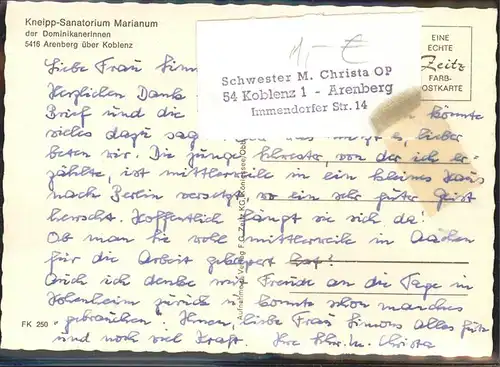 Kneipp-Sanatorium Marianum
der Dominikanerinnen
5416 Arenberg über Koblenz
EINE
ECHTE
Zeitz
FARB-
POSTKARTE
1,- €
Schwester M. Christa OP
54 Koblenz 1 - Arenberg
Immendorfer Str. 14
Liebe Frau Simo
Herzlichen Dank
Brief und die könnte
vieles dazu sag lieber
beten wir. Die junge Schwester, von der ich er-
zählte, ist mittlerweile in ein kleines Haus
nach Berlin versetzt, wo ein sehr guter Geist
herrscht. Hoffentlich fängt sie sich da.
Ob man Sie wohl mittlerweile in Aachen
für die Arbeit hat?
Auch ich denke mit Freude an die Tage in
Hohenheim zurück u. konnte schon manches
"gebrauchen". Ihnen, liebe Frau Simons alles Gute
und noch viel Kraft. Ihre Schw. M. Christa
FK 250